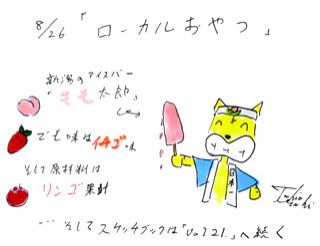 8/26 「ローカルおやつ」
新潟のアイスバー
「もも太郎」
でも味はイチゴ味
そして原材料は
リンゴ果汁
日本一
… そしてスケッチブックは「Vol.21」へ続く